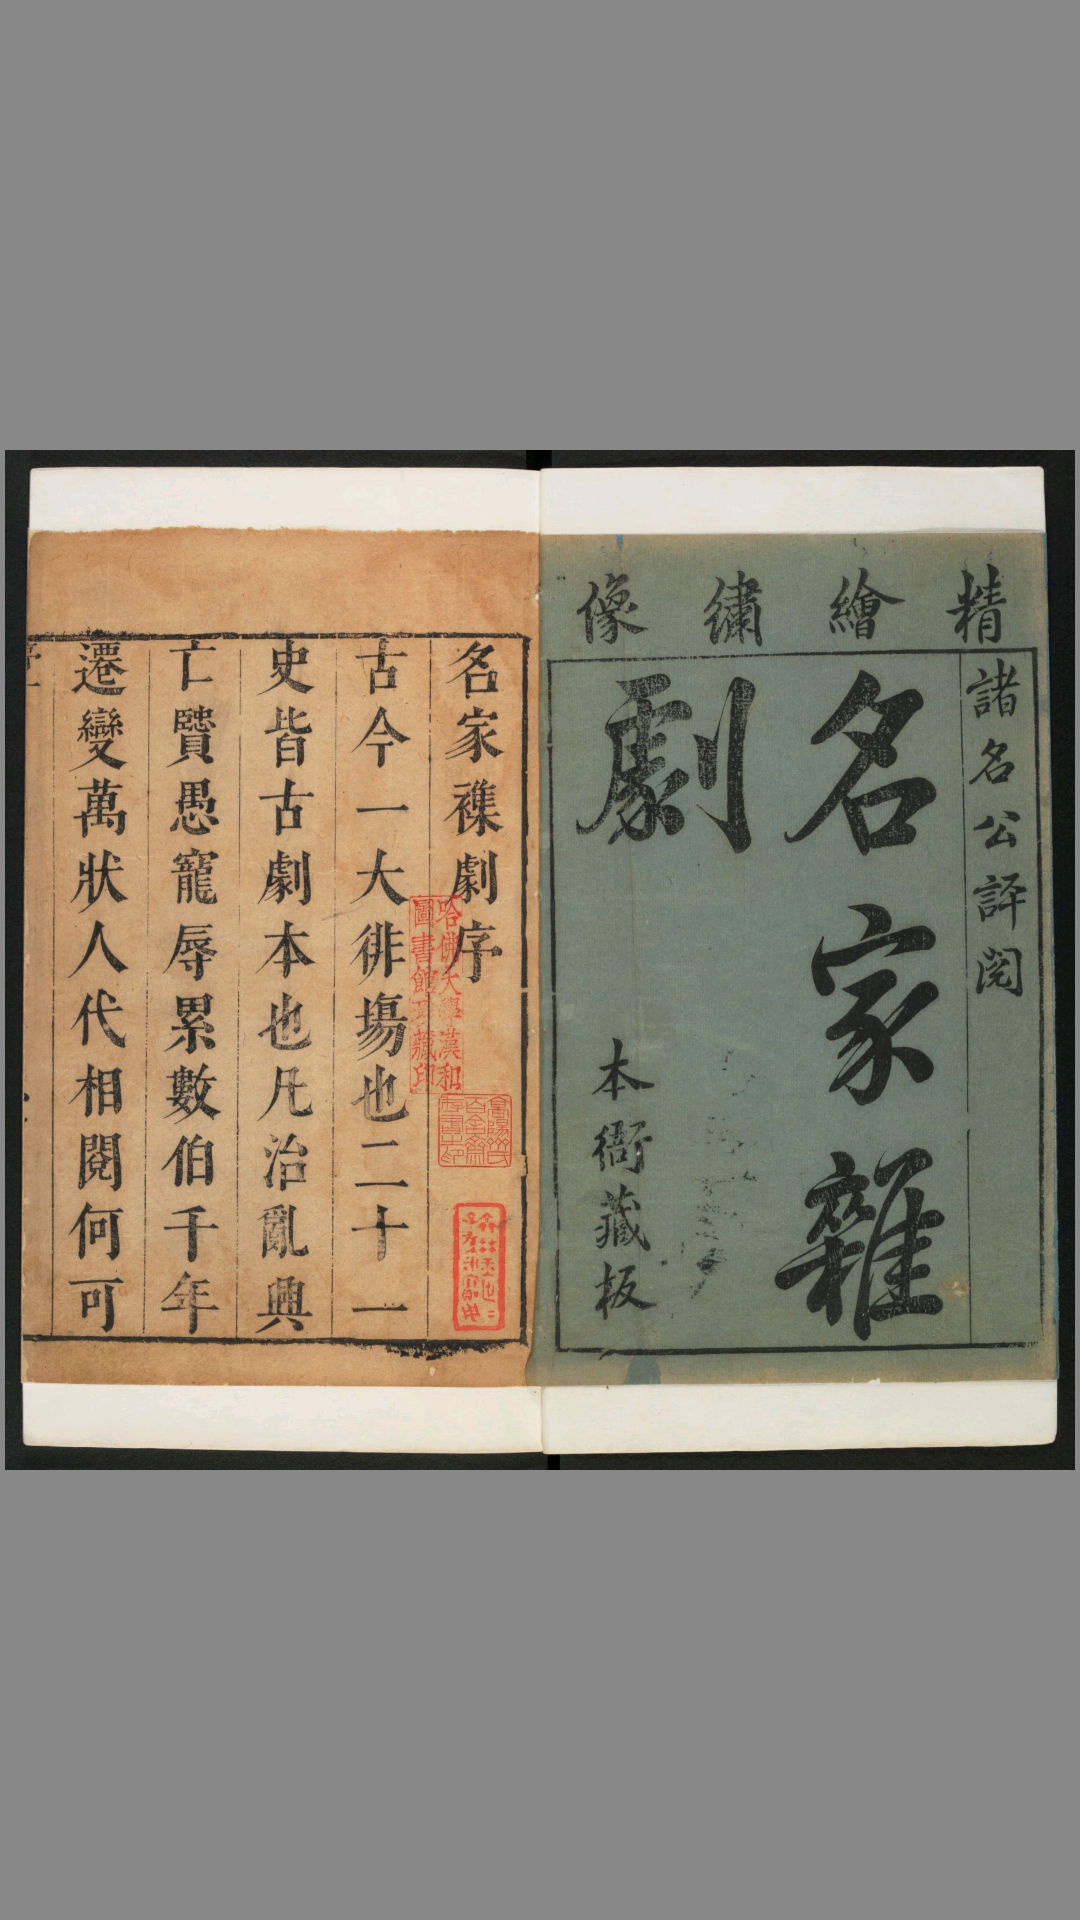 精繪繡像
諸名公評閱
名家雜
劇
本衙藏板
名家襍劇序
古今一大徘塲也二十一
史皆古劇本也凡治亂興
亡贒愚寵辱累數伯千年
遷變萬狀人代相閱何可
哈佛大學漢和
圖書館珍藏印